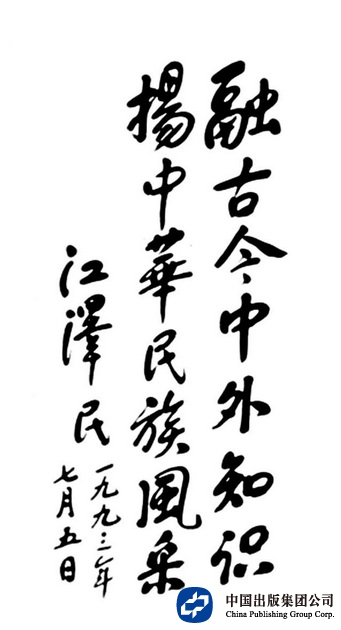 融古今中外知识
揚中華民族風采
江澤民
一九九三年
七月五日
中国出版集团公司
China Publishing Group Corp.